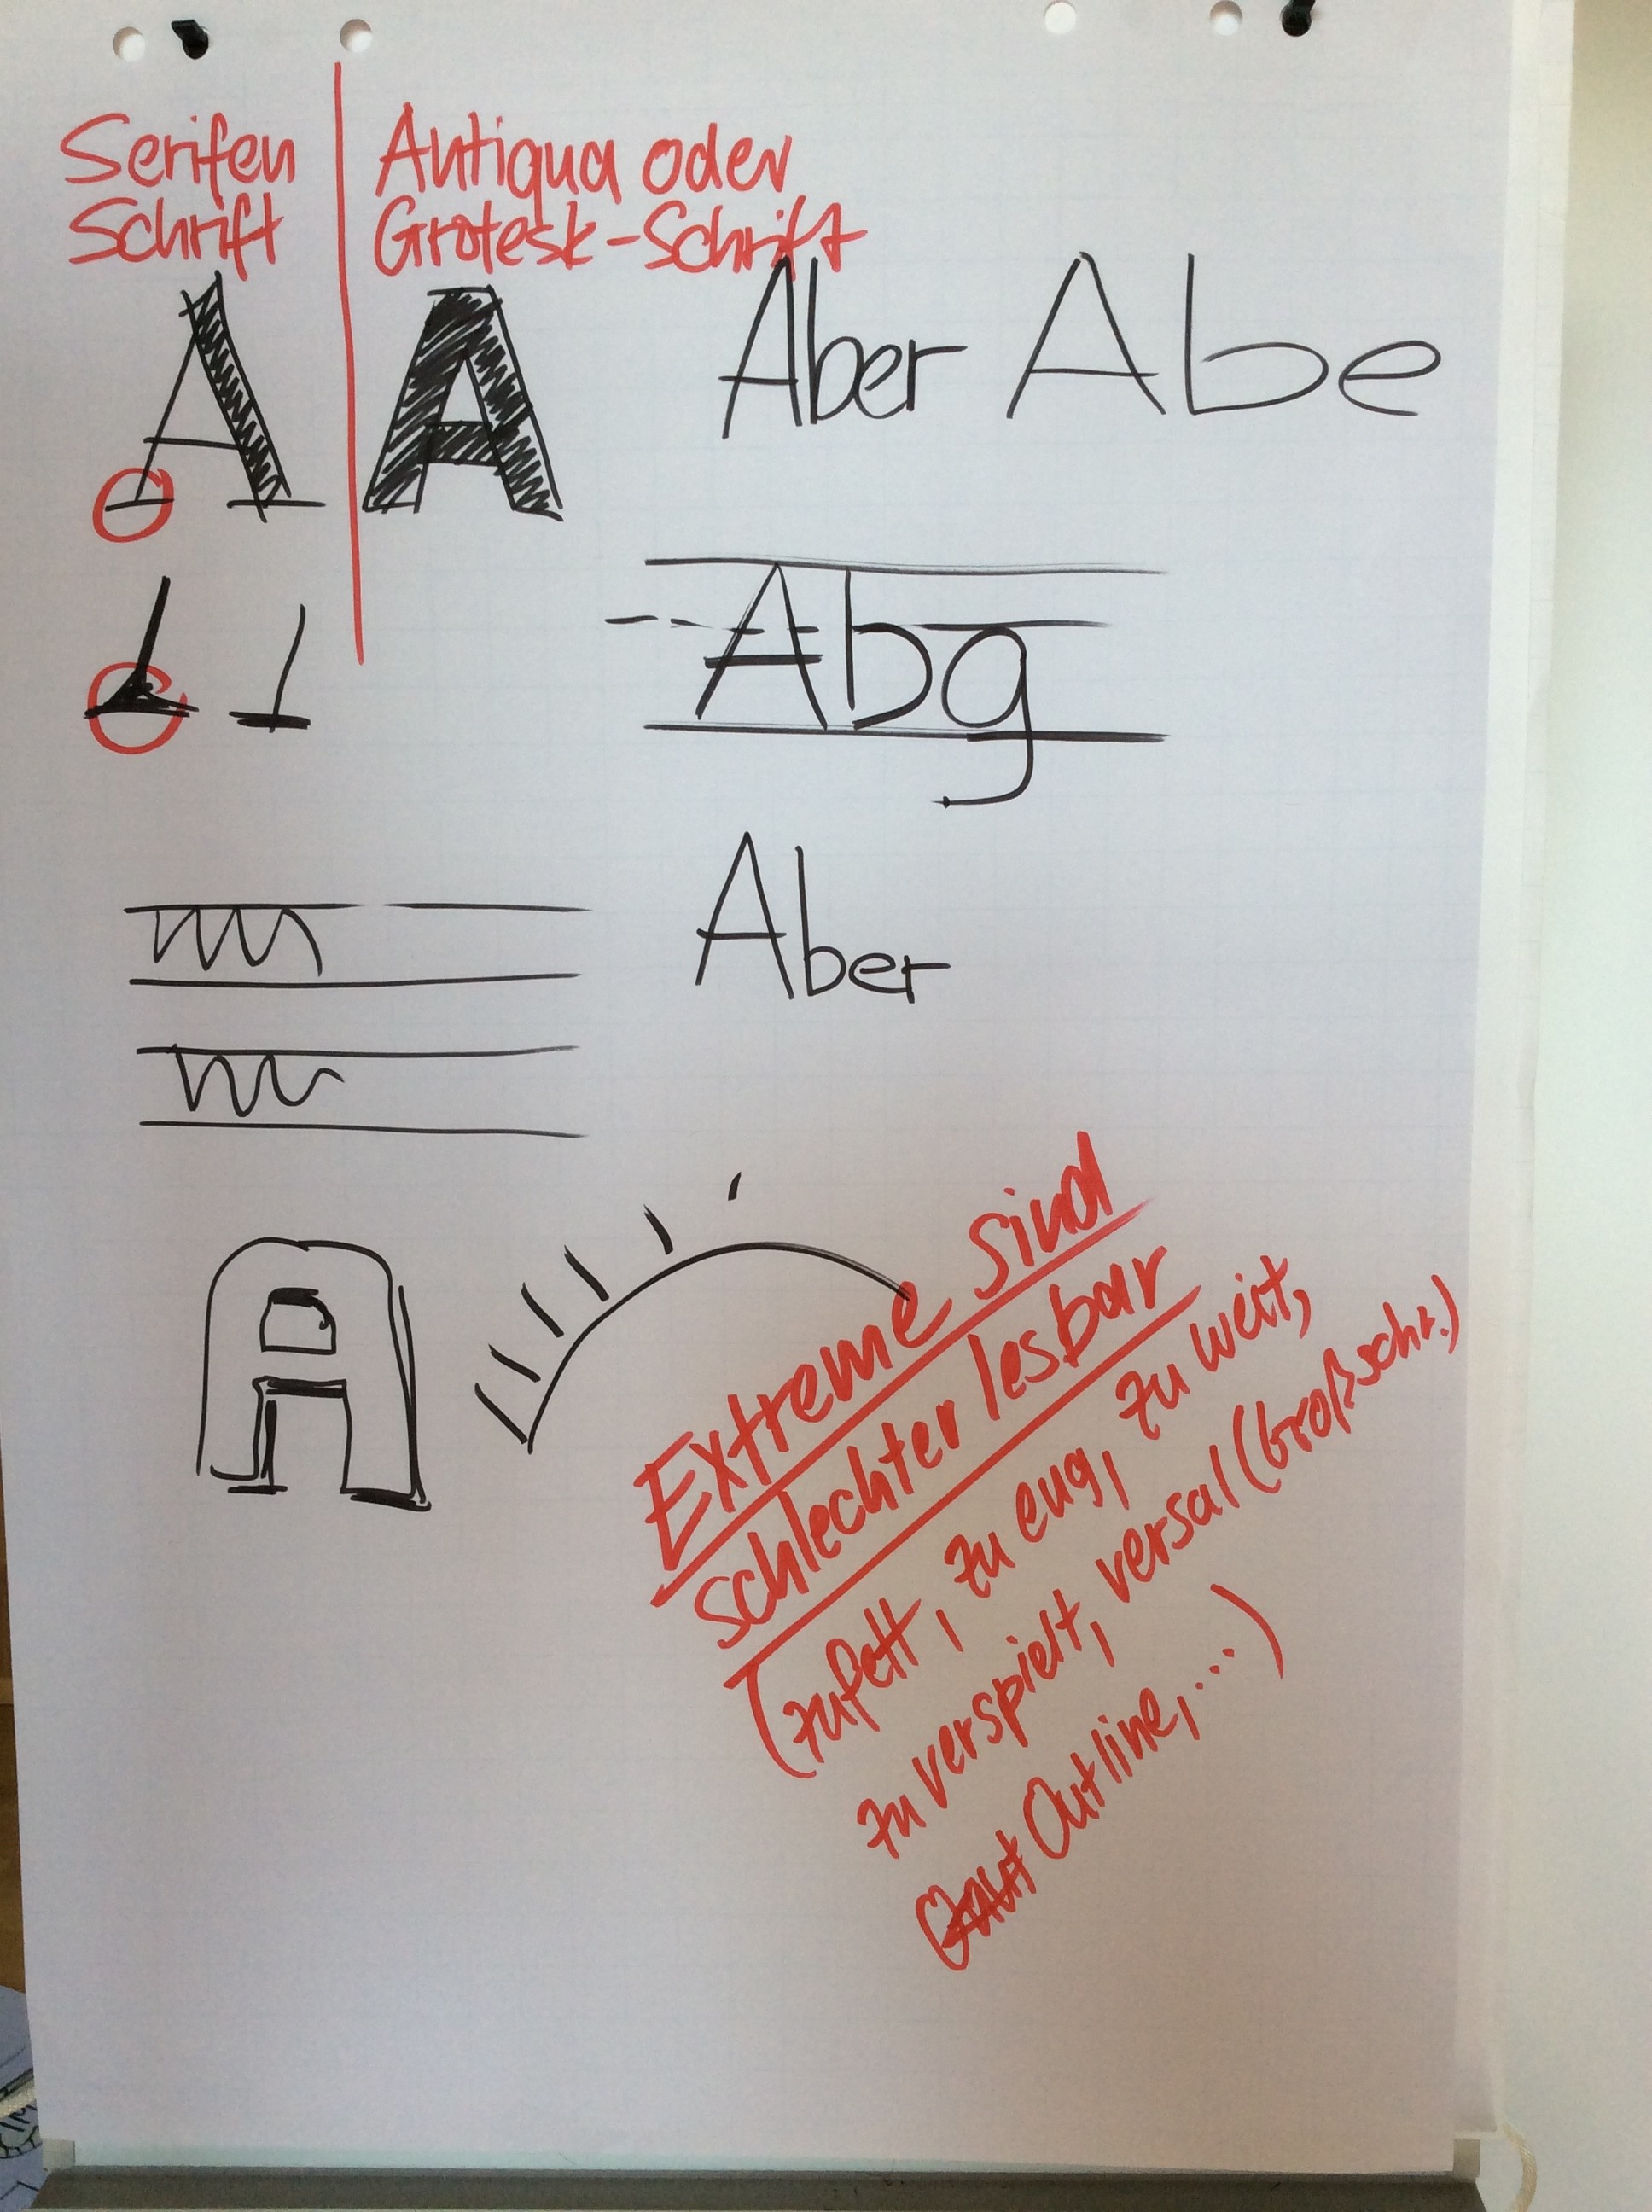 Serifen
Schrift
Antiqua oder
Grotesk-Schrift
A
A
Aber
Abe
Abg
Aber
A
Extreme sind
schlechter lesbar
(zu fett, zu eng, zu weit,
zu verspielt, versal (Großschr.)
Outline, ...)